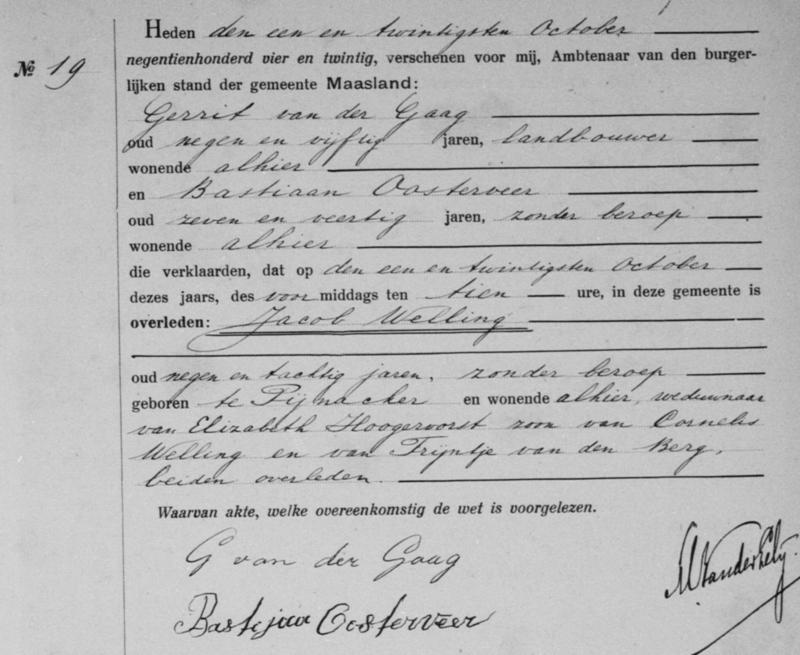 Heden den een en twintigsten October
negentienhonderd vier en twintig, verschenen voor mij, Ambtenaar van den burger-
№ 19
lijken stand der gemeente Maasland:
Gerrit van der Gaag
oud negen en vijftig jaren, landbouwer
wonende alhier
en Bastiaan Oosterveer
oud zeven en veertig jaren, zonder beroep
wonende alhier
die verklaarden, dat op den een en twintigsten October
dezes jaars, des voor middags ten tien ure, in deze gemeente is
overleden: Jacob Welling
oud negen en tachtig jaren, zonder beroep
geboren te Pijnacker en wonende alhier, weduwnaar
van Elizabeth Hoogervorst zoon van Cornelis
Welling en van Trijntje van den Berg,
beiden overleden.
Waarvan akte, welke overeenkomstig de wet is voorgelezen.
G van der Gaag
Bastijaan Oosterveer